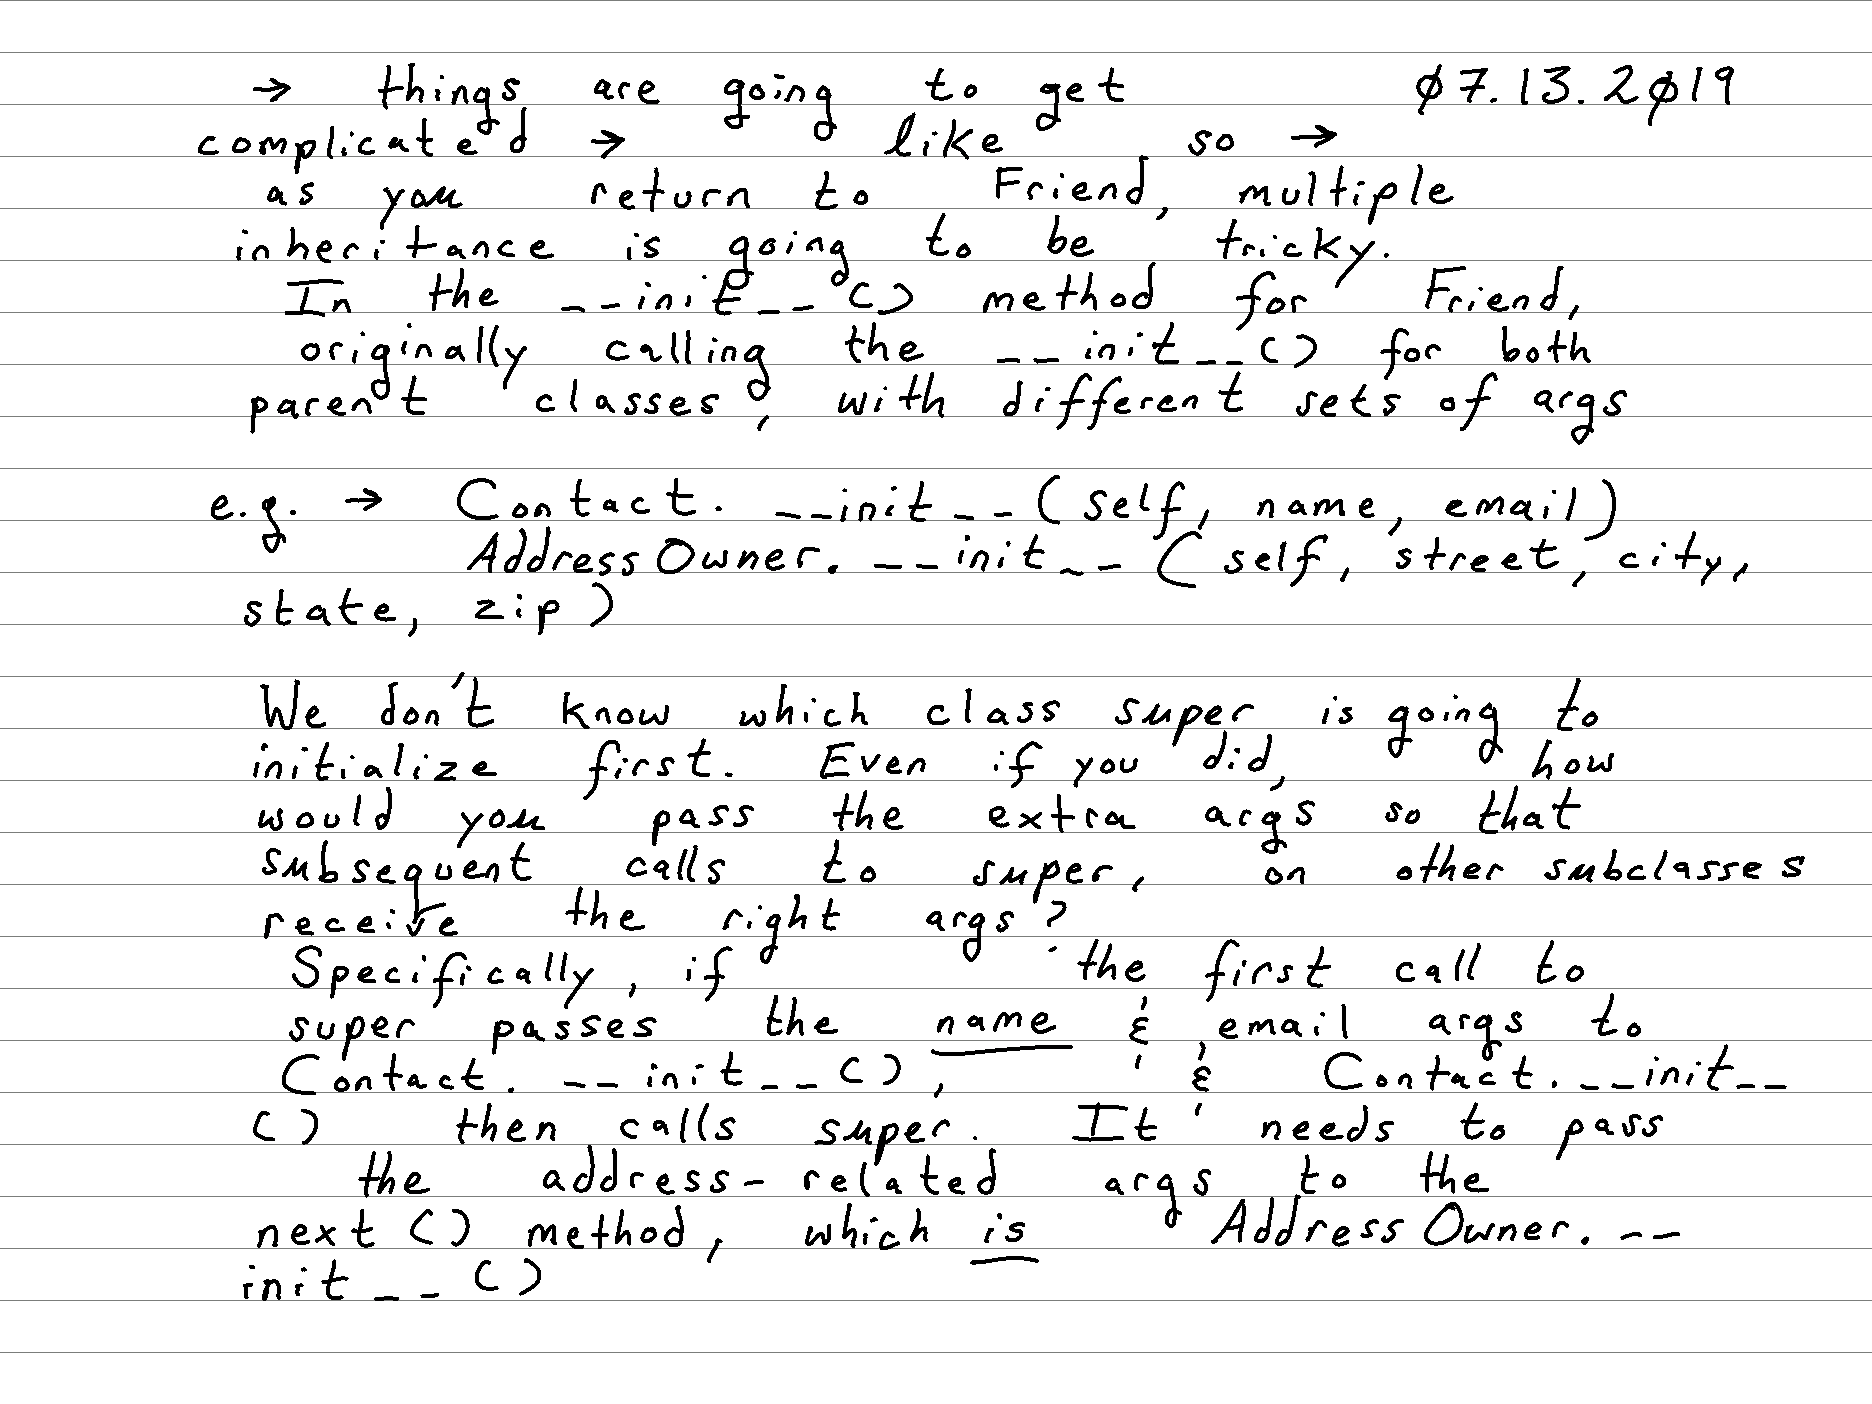 → things are going to get ø7.13.2ø19
complicated → like so →
as you return to Friend, multiple
inheritance is going to be tricky.
In the __init__() method for Friend,
originally calling the __init__() for both
parent classes, with different sets of args
e.g. → Contact.__init__(self, name, email)
AddressOwner.__init__(self, street, city,
state, zip)
We don't know which class super is going to
initialize first. Even if you did, how
would you pass the extra args so that
subsequent calls to super, on other subclasses
receive the right args?
Specifically, if the first call to
super passes the name & email args to
Contact.__init__(), & Contact.__init__
() then calls super. It needs to pass
the address-related args to the
next () method, which is AddressOwner.__
init__()